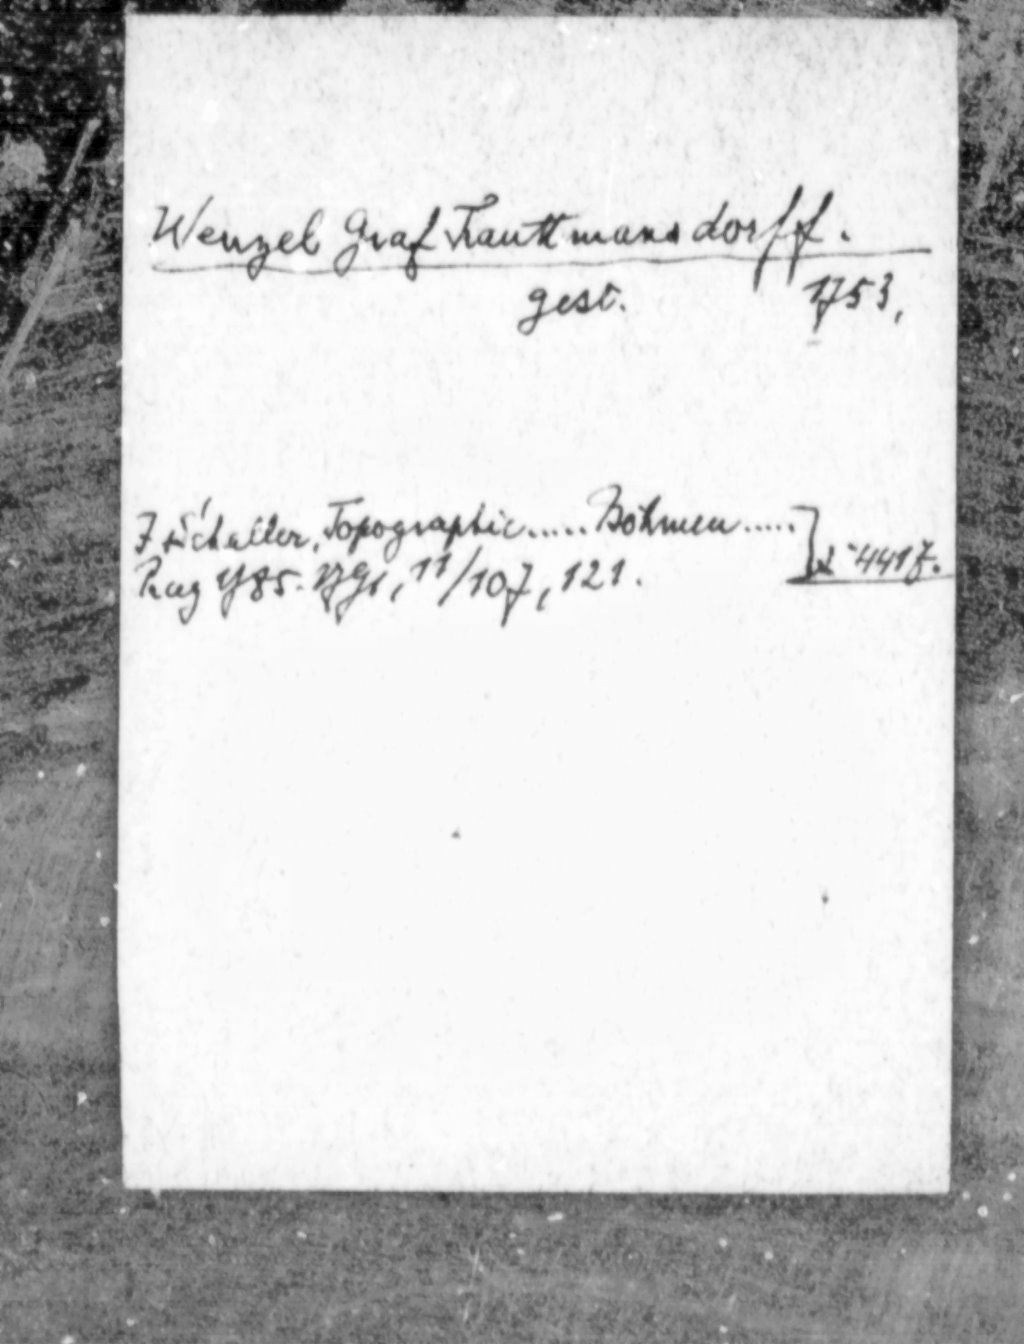 Wenzel Graf Trauttmansdorff.
gest. 1753,
J. Schaller, Topographie ..... Böhmen .....
Prag 1785-1791, 11/107, 121. 4417.